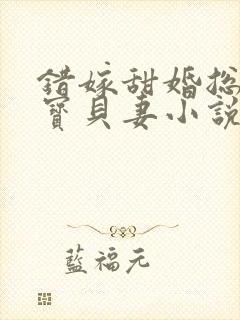 錯嫁甜婚總
寶貝妻小說
藍福元